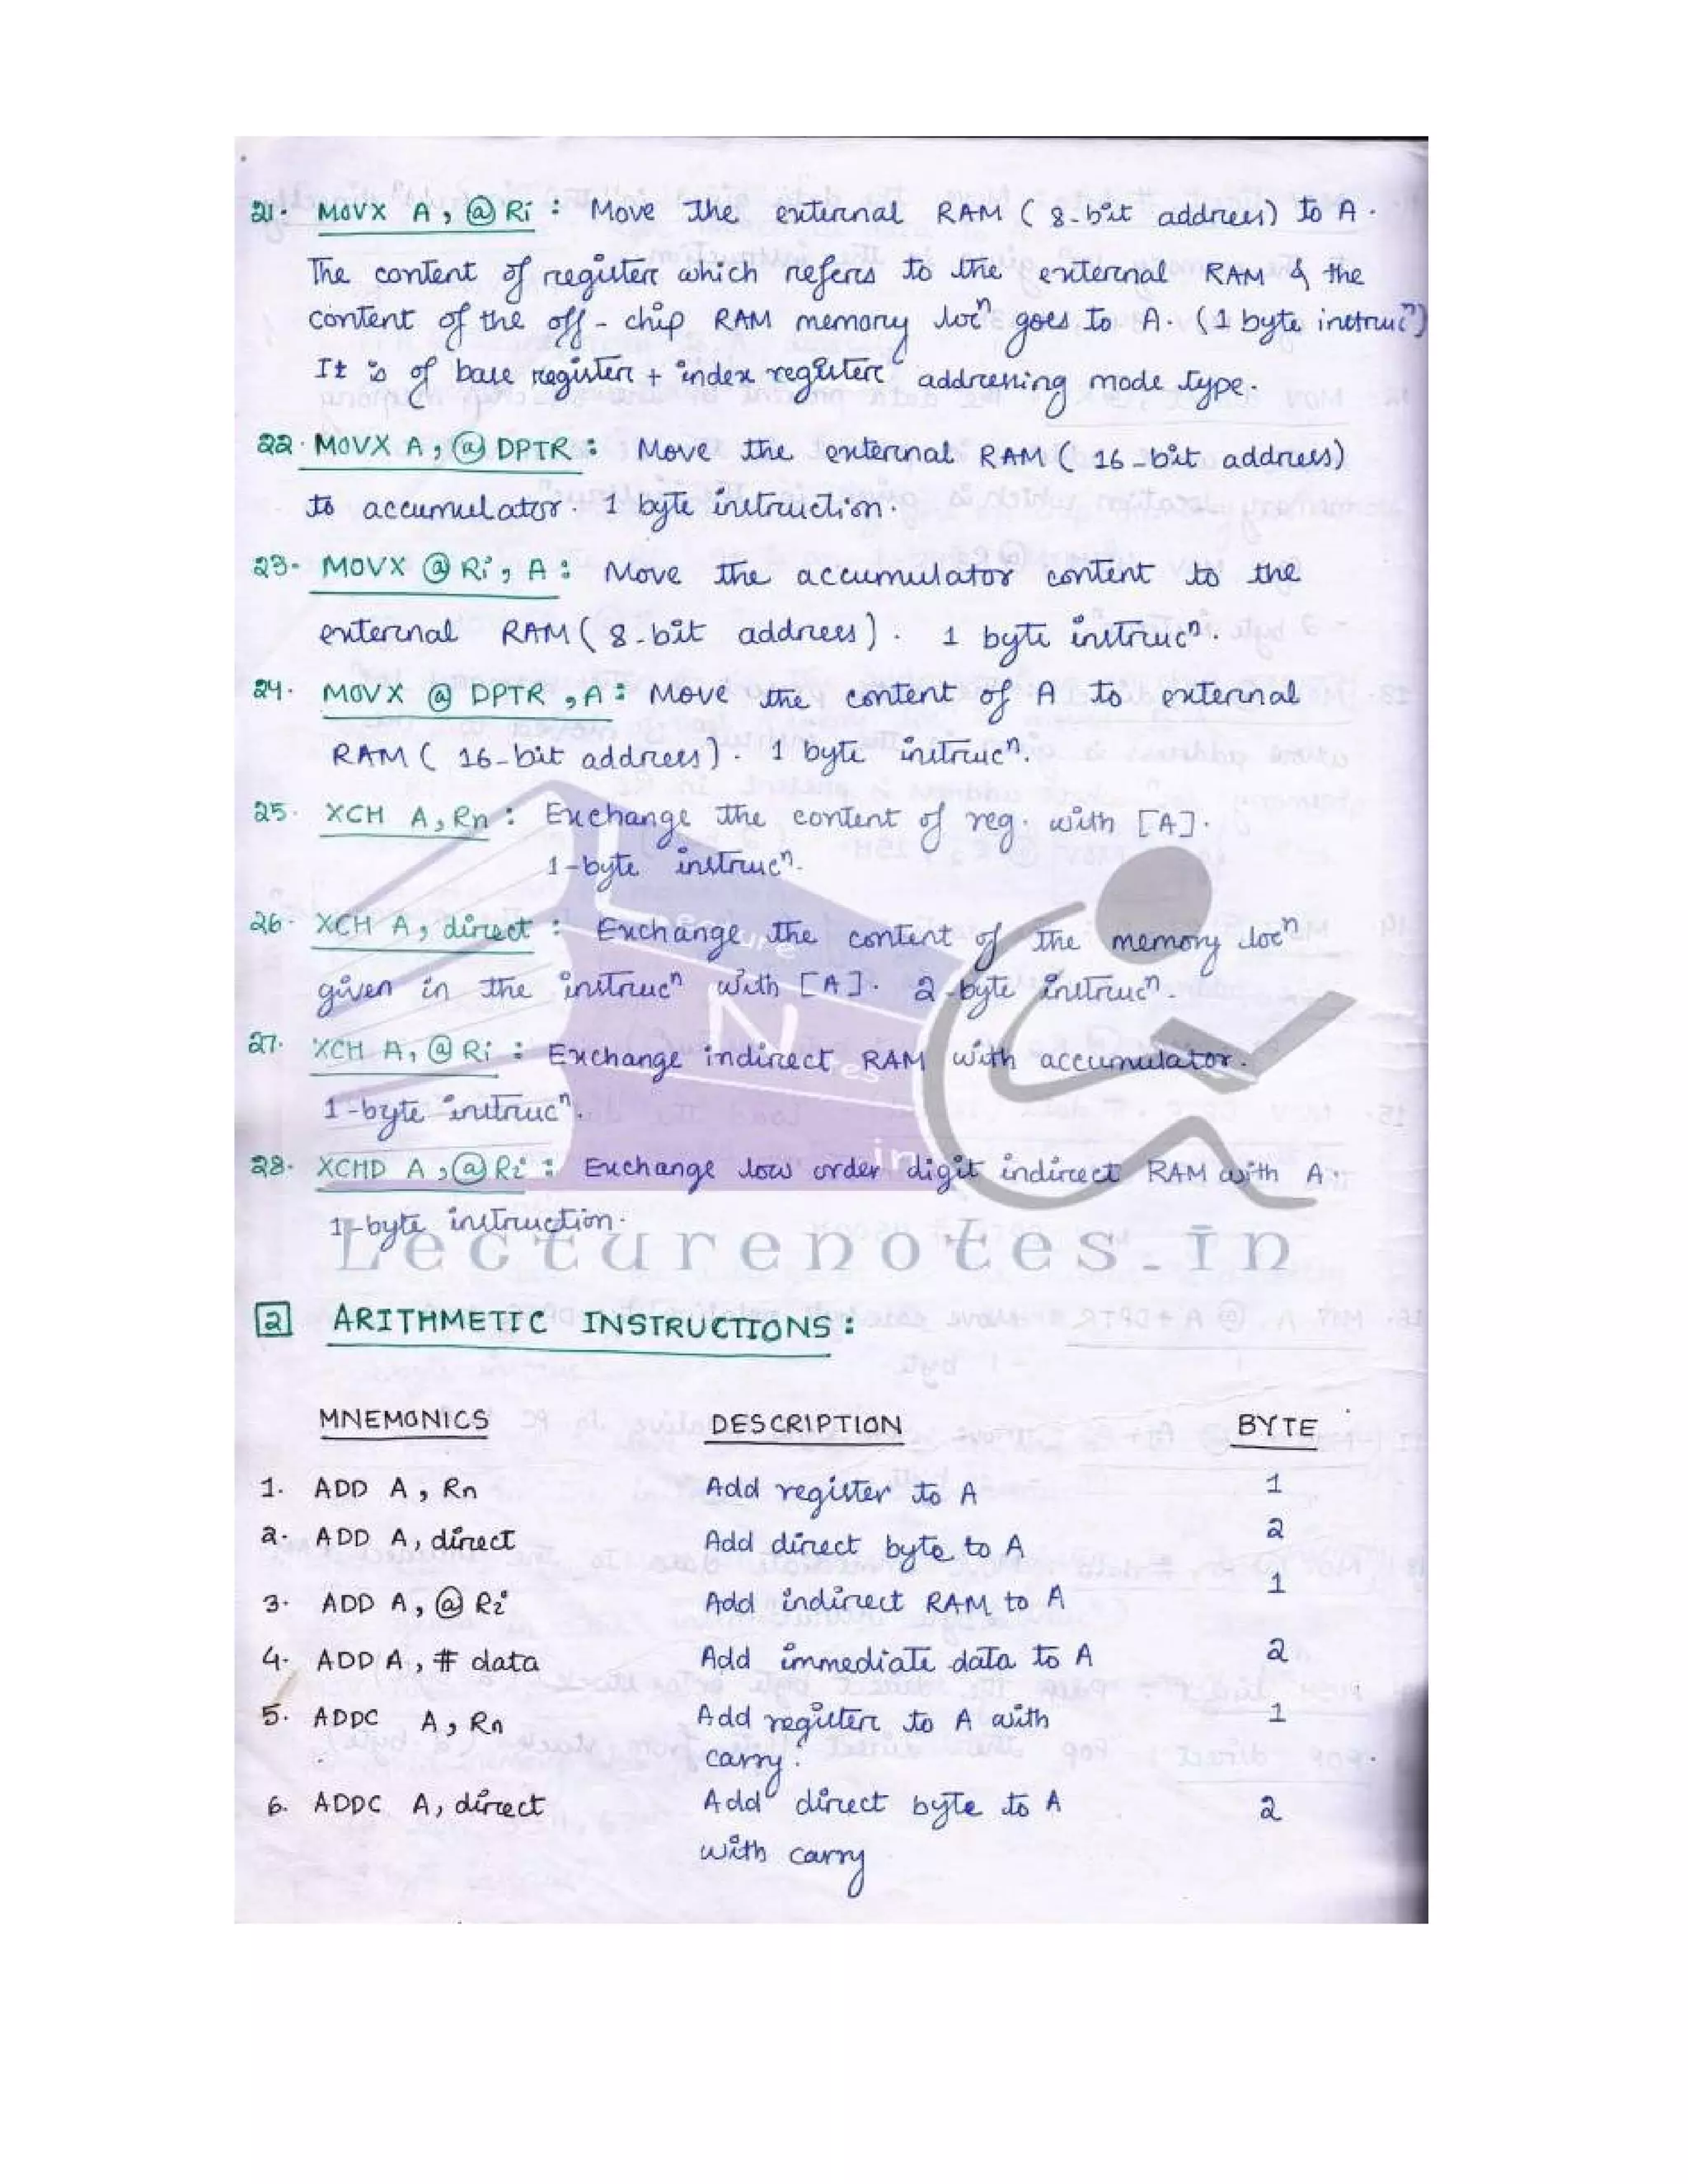 21. MOVX A, @Ri : Move the external RAM ( 8-bit address) to A.
The content of register which refers to the external RAM & the
content of the off-chip RAM memory locⁿ goes to A. (1 byte instrucⁿ)
It is of base register + index register addressing mode type.
22. MOVX A, @DPTR : Move the external RAM ( 16-bit address)
to accumulator. 1 byte instruction.
23. MOVX @Ri, A : Move the accumulator content to the
external RAM ( 8-bit address). 1 byte instrucⁿ.
24. MOVX @ DPTR, A : Move the content of A to external
RAM ( 16-bit address). 1 byte instrucⁿ.
25. XCH A, Rn : Exchange the content of reg. with [A].
1-byte instrucⁿ.
26. XCH A, direct : Exchange the content of the memory locⁿ
given in the instrucⁿ with [A]. 2-byte instrucⁿ.
27. XCH A, @Ri : Exchange indirect RAM with accumulator.
1-byte instrucⁿ.
28. XCHD A, @Ri : Exchange low order digit indirect RAM with A.
1-byte instruction.
Lecture Notes in
Lecturenotes.in
2 ARITHMETIC INSTRUCTIONS :
MNEMONICS DESCRIPTION BYTE
1. ADD A, Rn Add register to A 1
2. ADD A, direct Add direct byte to A 2
3. ADD A, @Ri Add indirect RAM to A 1
4. ADD A, # data Add immediate data to A 2
5. ADDC A, Rn Add register to A with 1
carry.
6. ADDC A, direct Add direct byte to A 2
with carry